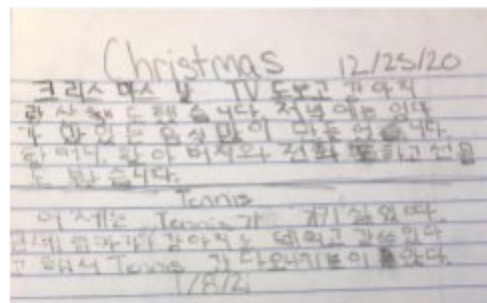 Christmas 12/25/20
크리스마스 날 TV도 보고 강아지
산책도 했습니다. 저녁에는 엄마
가 맛있는 음식 많이 만들었습니다.
할머니, 할아버지와 전화 통화하고 선물
도 봤습니다.
Tennis
어제는 Tennis가 가기 싫었다.
엄마가 강아지도 데리고 갈 수 있다
고 해서 Tennis 갔다
1/8/21